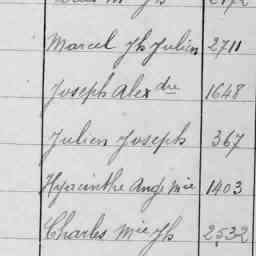 Marcel Jh Julien 2711
Joseph Alexdre 1648
Julien Joseph 367
Hyacinthe Ange Mie 1403
Charles Mie Jh 2532